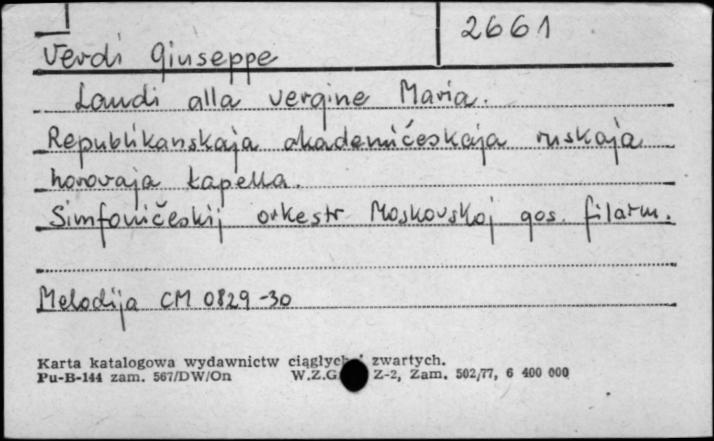 2661
Verdi Giuseppe
Laudi alla vergine Maria.
Republikanskaja akademičeskaja ruskaja
horovaja kapella.
Simfoničeskij orkestr Moskovskoj gos. filarm.
Melodija CM 0829-30
Karta katalogowa wydawnictw ciągłych i zwartych.
Pu-B-144 zam. 567/DW/On W.Z.G. Z-2, Zam. 502/77, 6 400 000